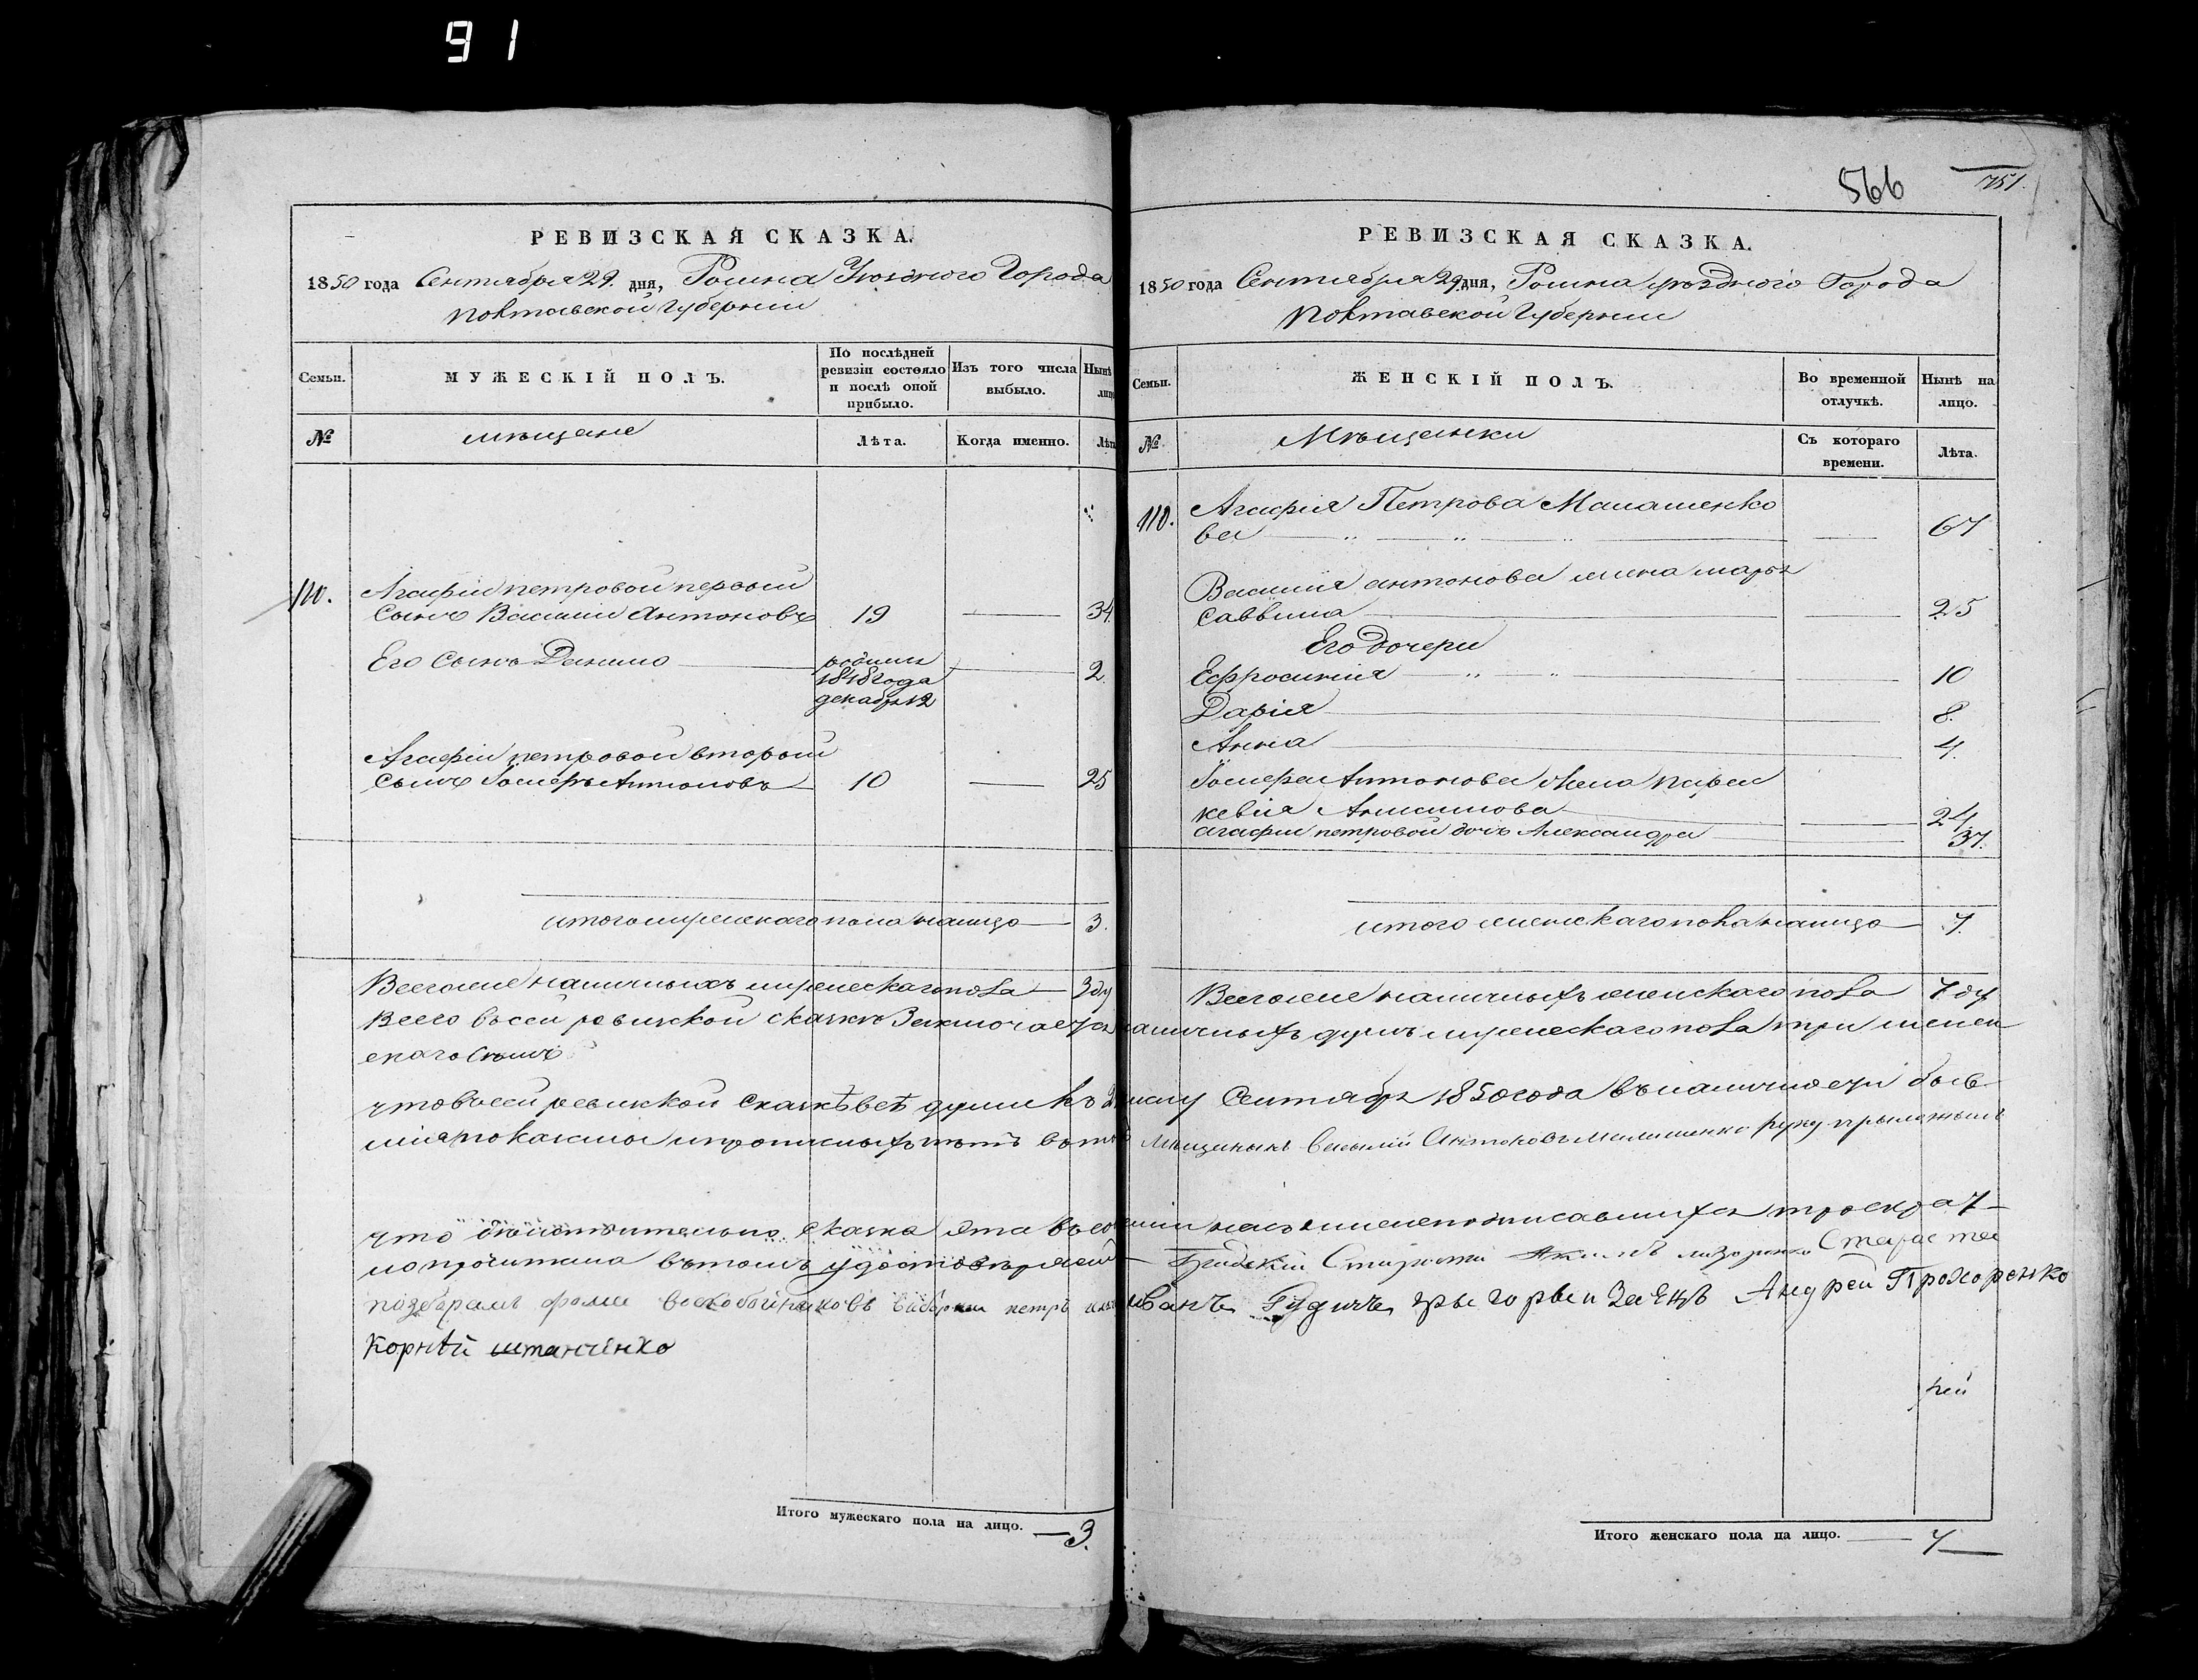 91
РЕВИЗСКАЯ СКАЗКА.
1850 года Сентября 29. дня, Ромна Уѣзднаго Города
Полтавской Губерніи
Семьи.
МУЖЕСКІЙ ПОЛЪ.
По послѣдней ревизіи состояло и послѣ оной прибыло.
Изъ того числа выбыло.
Нынѣ
№
мѣщане
Лѣта.
Когда именно.
110.
Агафіи петровой первый
сынъ Василій Антоновъ 19 34.
Его сынъ Данило родился 1848 года декабря 12 2
Агафіи петровой второй
сынъ Антоновъ 10 25
итого мужескаго пола налицо 3.
Всего же наличныхъ мужескаго пола 3 ду
566
751.
РЕВИЗСКАЯ СКАЗКА.
1850 года Сентября 29 дня, Ромна уѣзднаго Города
Полтавской Губерніи
Семьи.
ЖЕНСКІЙ ПОЛЪ.
Во временной отлучкѣ.
Нынѣ на лицо.
№
Мѣщанки
Съ котораго времени.
Лѣта.
110.
Агафія Петрова Малашенко
ва 67
Василія антонова жена марья
саввина 25
Его дочери
Ефросинія 10
Дарія 8.
Анна 4.
Антонова жена Парас
кевія 24
агафіи петровой дочь Александра 37.
итого женскаго пола налицо 7.
Всего же наличныхъ женскаго пола 7 ду
Всего въ сей ревизской сказкѣ Заключается наличныхъ душъ мужескаго пола три женс
каго семь
что въ сей ревизской сказкѣ всѣ души к 2 числу Сентября 1850 года въ наличности
и прописныхъ нѣтъ въ томъ мѣщанинъ василій Антоновъ малашенко руку
что дѣйствительно сказка эта въ
но прочитана въ томъ удостовѣряемъ Градскій Староста
фома воскобойниковъ петръ Иванъ Заецъ Андрей Прохоренко
Корнѣй
ней
Итого мужескаго пола на лицо. 3.
Итого женскаго пола на лицо. 7